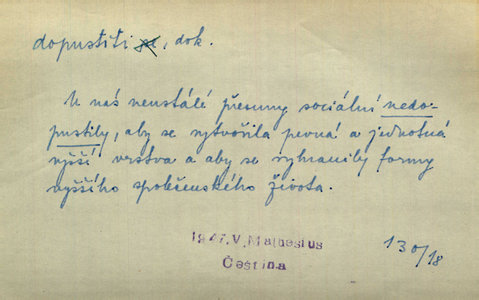 dopustiti se, dok.
U nás neustálé přesuny sociální nedo-
pustily, aby se vytvořila pevná a jednotná
vyšší vrstva a aby se vyhranily formy
vyššího společenského života.
1947.V.Mathesius
Čeština
130/18